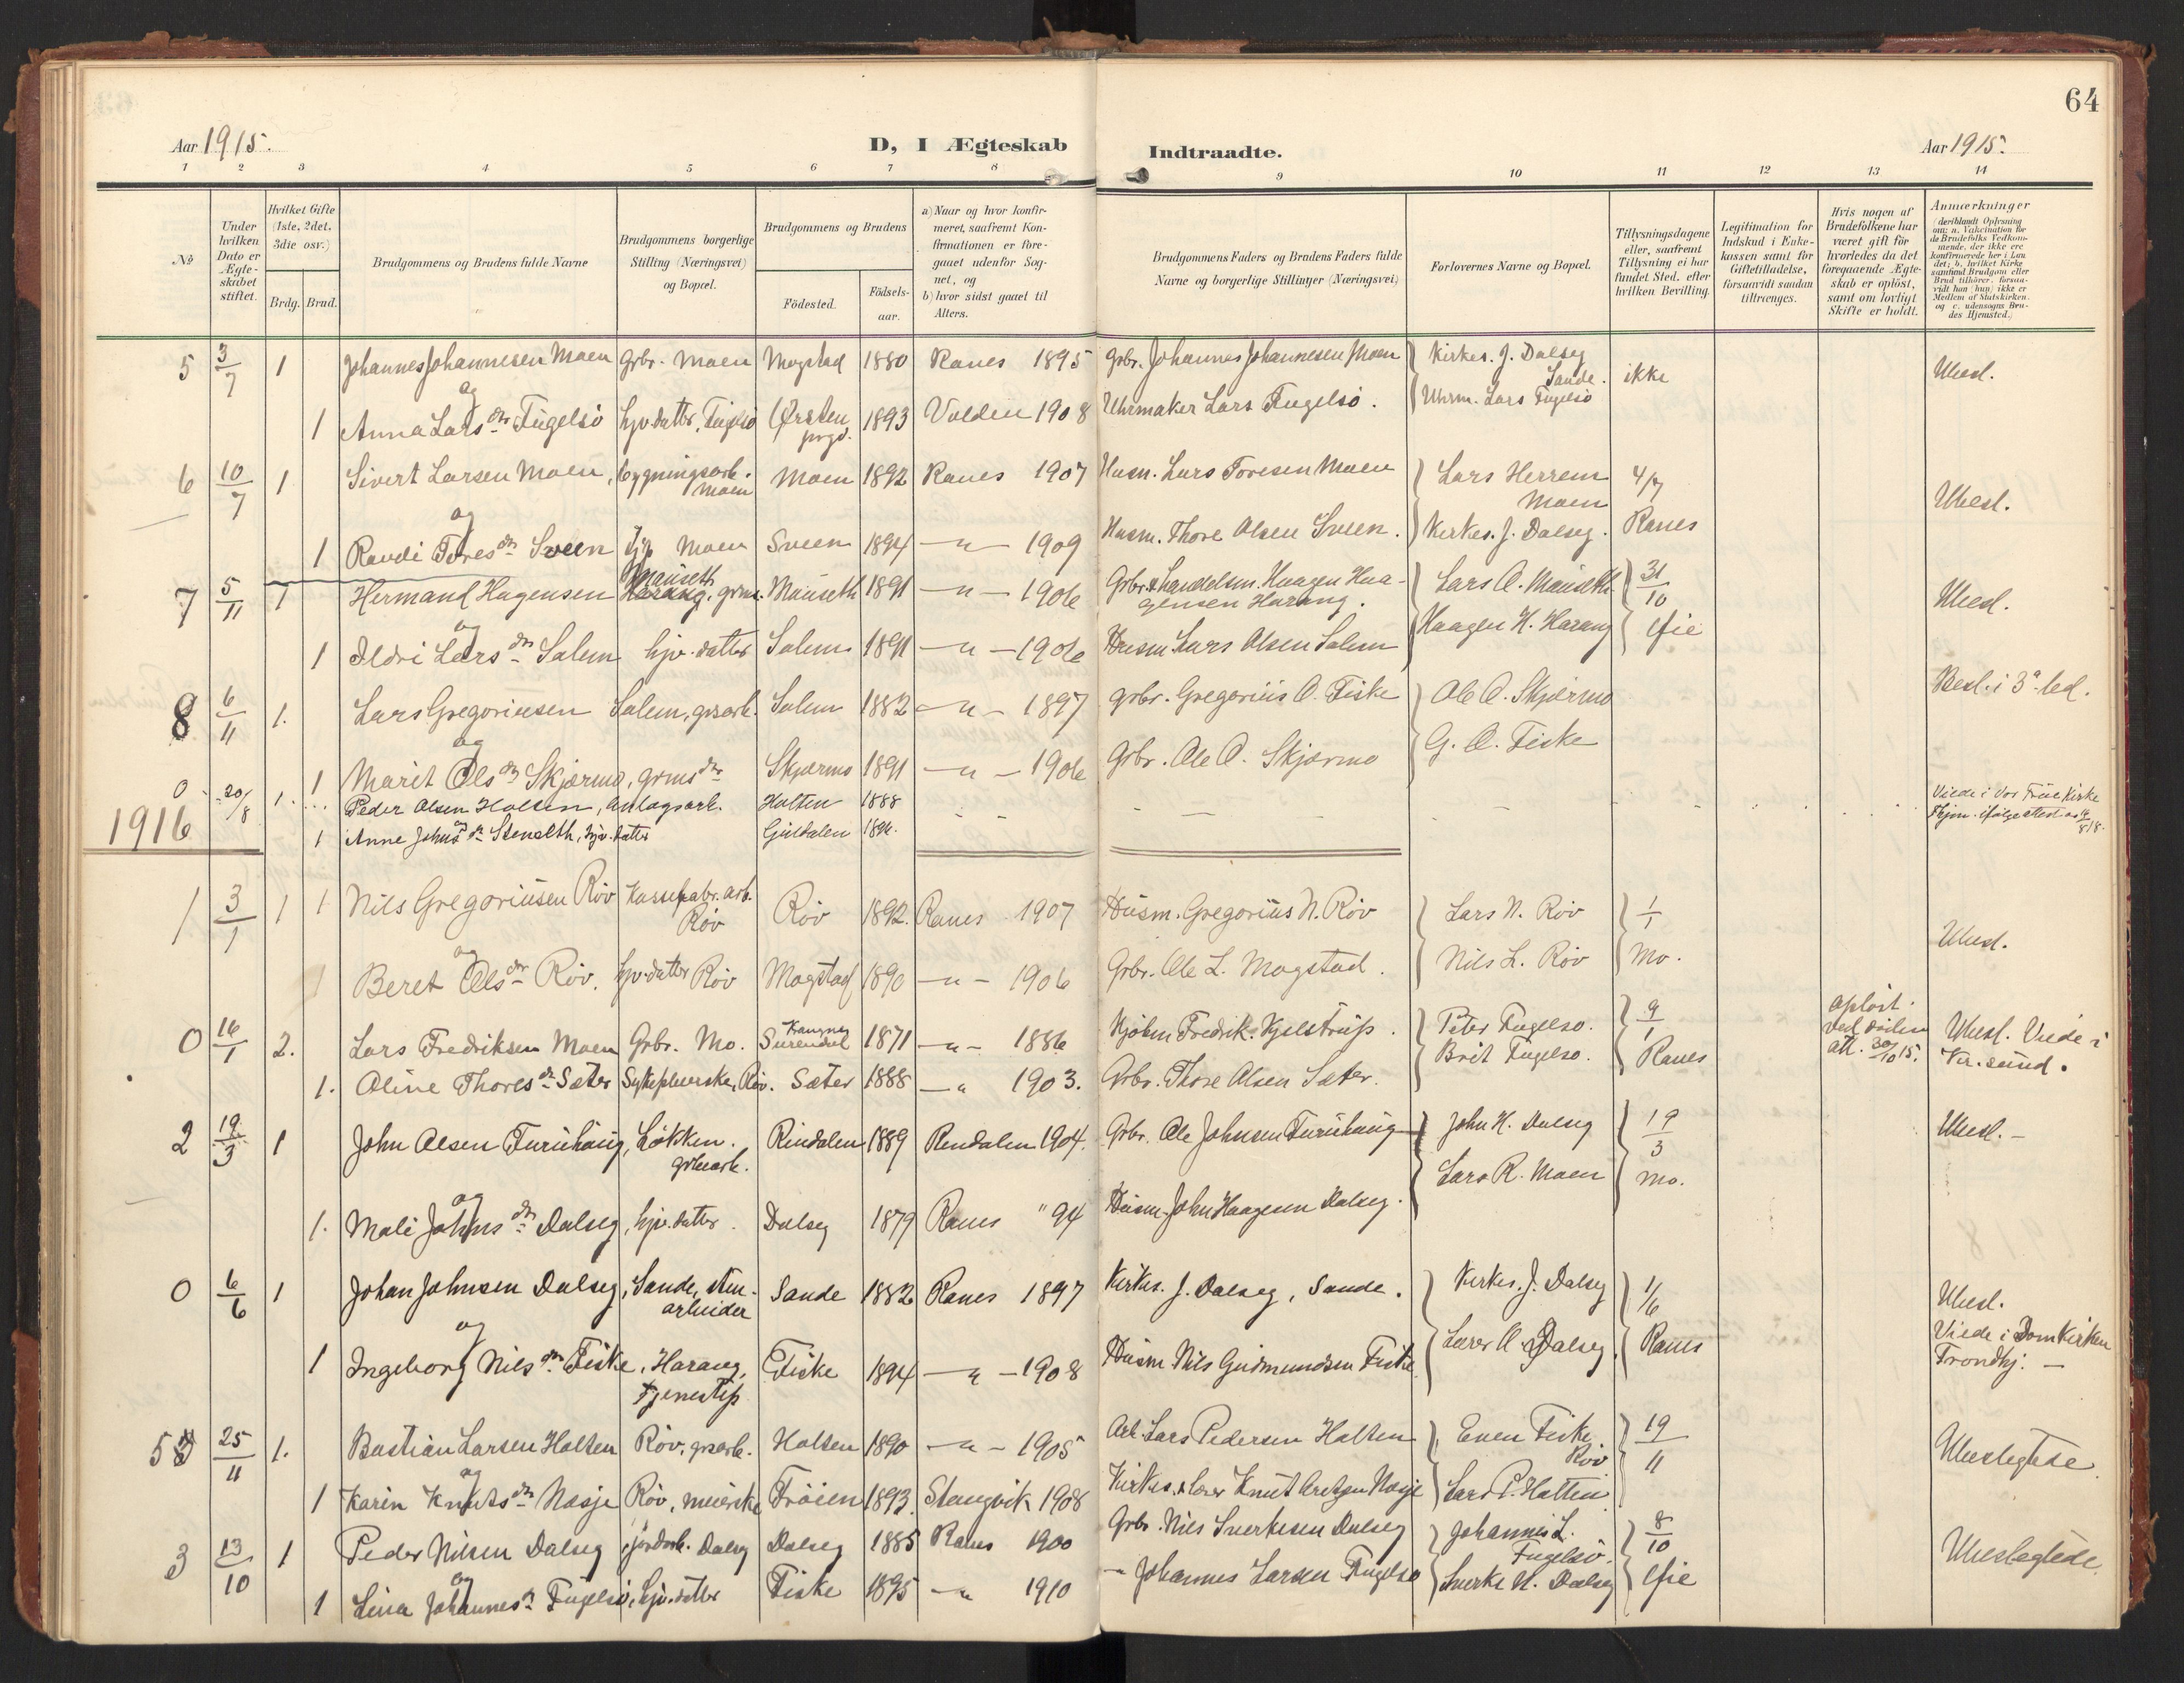 64
Aar 1915.
D, I Ægteskab Indtraadte.
Aar 1915.
1 2 3 4 5 6 7 8 9 10 11 12 13 14
No
Under hvilken Dato er Ægteskabet stiftet.
Hvilket Gifte (1ste, 2det, 3die osv.)
Brdg. Brud.
Brudgommens og Brudens fulde Navne
Brudgommens borgerlige Stilling (Næringsvei) og Bopæl.
Brudgommens og Brudens
Födested.
Födsels-aar.
a) Naar og hvor konfirmeret, saafremt Konfirmationen er foregaaet udenfor Sognet, og
b) hvor sidst gaaet til Alters.
Brudgommens Faders og Brudens Faders fulde Navne og borgerlige Stillinger (Næringsvei)
Forlovernes Navne og Bopæl.
Tillysningsdagene eller, saafremt Tillysning ei har fundet Sted, efter hvilken Bevilling.
Legitimation for Indskud i Enkekassen samt for Giftetilladelse, forsaavidt saadan tiltrænges.
Hvis nogen af Brudefolkene har været gift för hvorledes da det foregaaende Ægteskab er oplöst, samt om lovligt Skifte er holdt.
Anmærkninger
5 3/7 1 Johannes Johannesen Moen Grbr. Moen Mogstad 1880 Ranes 1895 Grbr. Johannes Johannesen Moen Kirkes. J. Dalseg Sande. ikke Ubesl.
og
1 Anna Larsdtr Fugelsö hjv. datter, Fugelsö Ørsten prgd. 1893 Volden 1908 Uhrmaker Lars Fugelsö. Uhrm. Lars Fugelsö
6 10/7 1 Sivert Larsen Moen, bygningsarb. Moen Moen 1892 Ranes 1907 Husm. Lars Toresen Moen Lars Herrem Moen 4/7 Ubesl.
og
1 Randi Toresdtr Sveen Tjp Moen Sveen 1894 -"- 1909 Husm. Thore Olsen Sveen. Kirkes. J. Dalseg. Ranes
7 5/11 1 Hermand Hagensen Mauseth grms. Mauseth 1891 -"- 1906 Grbr. & Handelsm. Haagen Haagensen Harang. Lars O. Mauseth 31/10 Ubesl.
og
1 Ildri Larsdtr Salem hjv. datter Salem 1891 -"- 1906 Husm Lars Olsen Salem Haagen H. Harang Øie
8 6/11 1. Lars Gregoriusen Salem, grsarb. Salem 1882 -"- 1897 grbr. Gregorius O. Fiske Ole O. Skjærmo Besl. i 3a led.
og
1 Marit Olsdtr Skjærmo, grmsdtr Skjærmo 1891 -"- 1906 Grbr. Ole O. Skjærmo G. O. Fiske
0 20/8 1. Peder Olsen Holten, Anlægsarb. Holten 1888 Viede i Vor Frue Kirke
1916 og
1 Anne Johnsdr Stenseth, hjv. datter Guldalen
1 3/1 1 1 Nils Gregoriusen Röv Kassefabr. arb. Röv Röv 1892. Ranes 1907 Husm. Gregorius N. Röv Lars N. Röv 1/1 Ubesl.
og
1 Beret Olsdtr Röv. hjv. datter Röv Mogstad 1890 -"- 1906 Grbr. Ole L. Mogstad. Nils L. Röv Mo.
0 16/1 2. Lars Fredriksen Moen Grbr. Mo. Surendal 1871 -"- 1886 Kjöbm Fredrik Kjelstrup. Peter Fugelso. 9/1 Ubesl. Viede i Kr. sund.
1. Oline Thoresdr Sæter Sykepleierske, Röv. Sæter 1888 -"- 1903. Grbr. Thore Olsen Sæter. Brit Fugelso. Ranes
2 19/3 1 John Olsen Turuhaug, Lökken. grubearb. Rindalen 1889 Rindalen 1904. Grbr. Ole Johnsen Turuhaug John H. Dalseg 19/3 Ubesl.-
og
1. Mali Johnsdtr Dalseg, hjv. datter. Dalseg 1879 Ranes " 94 Husm. John Haagensen Dalseg. Lars R. Moen Mo.
0 6/6 1 Johan Johnsen Dalseg, Sande, stenarbeider Sande 1882 Ranes 1897 Kirkes. J. Dalseg, Sande. Kirkes. J. Dalseg 1/6 Ubesl.
og
1 Ingeborg Nilsdtr Fiske, Harang, Tjenestep Fiske 1894 -"- 1908 Husm Nils Gudmundsen Fiske Lærer O. Dalseg. Ranes Viede i Domkirken Trondhj. -
5 25/11 1. Bastian Larsen Holten Röv, grsarb. Holten 1890 -"- 1905 Arb. Lars Pedersen Holten Even Fiske Röv 19/11 Ubeslegtede.
og
1 Karin Knutsdtr Næsje Röv, meierske Tröien 1893. Stangvik 1908 Kirkes. & lærer Knut Næsje Lars P. Holten
3 13/10 1 Peder Nilsen Dalseg jordarb. Dalseg Dalseg 1885 Ranes 1900 Grbr. Nils Sverkesen Dalseg Johannes L. Fugelsö. 8/10 Ubeslegtede.
og
1 Lina Johannesdr Fugelsö, hjv. datter Fiske 1895 -"- 1910 - Johannes Larsen Fugelsö Sverke N. Dalseg Øie